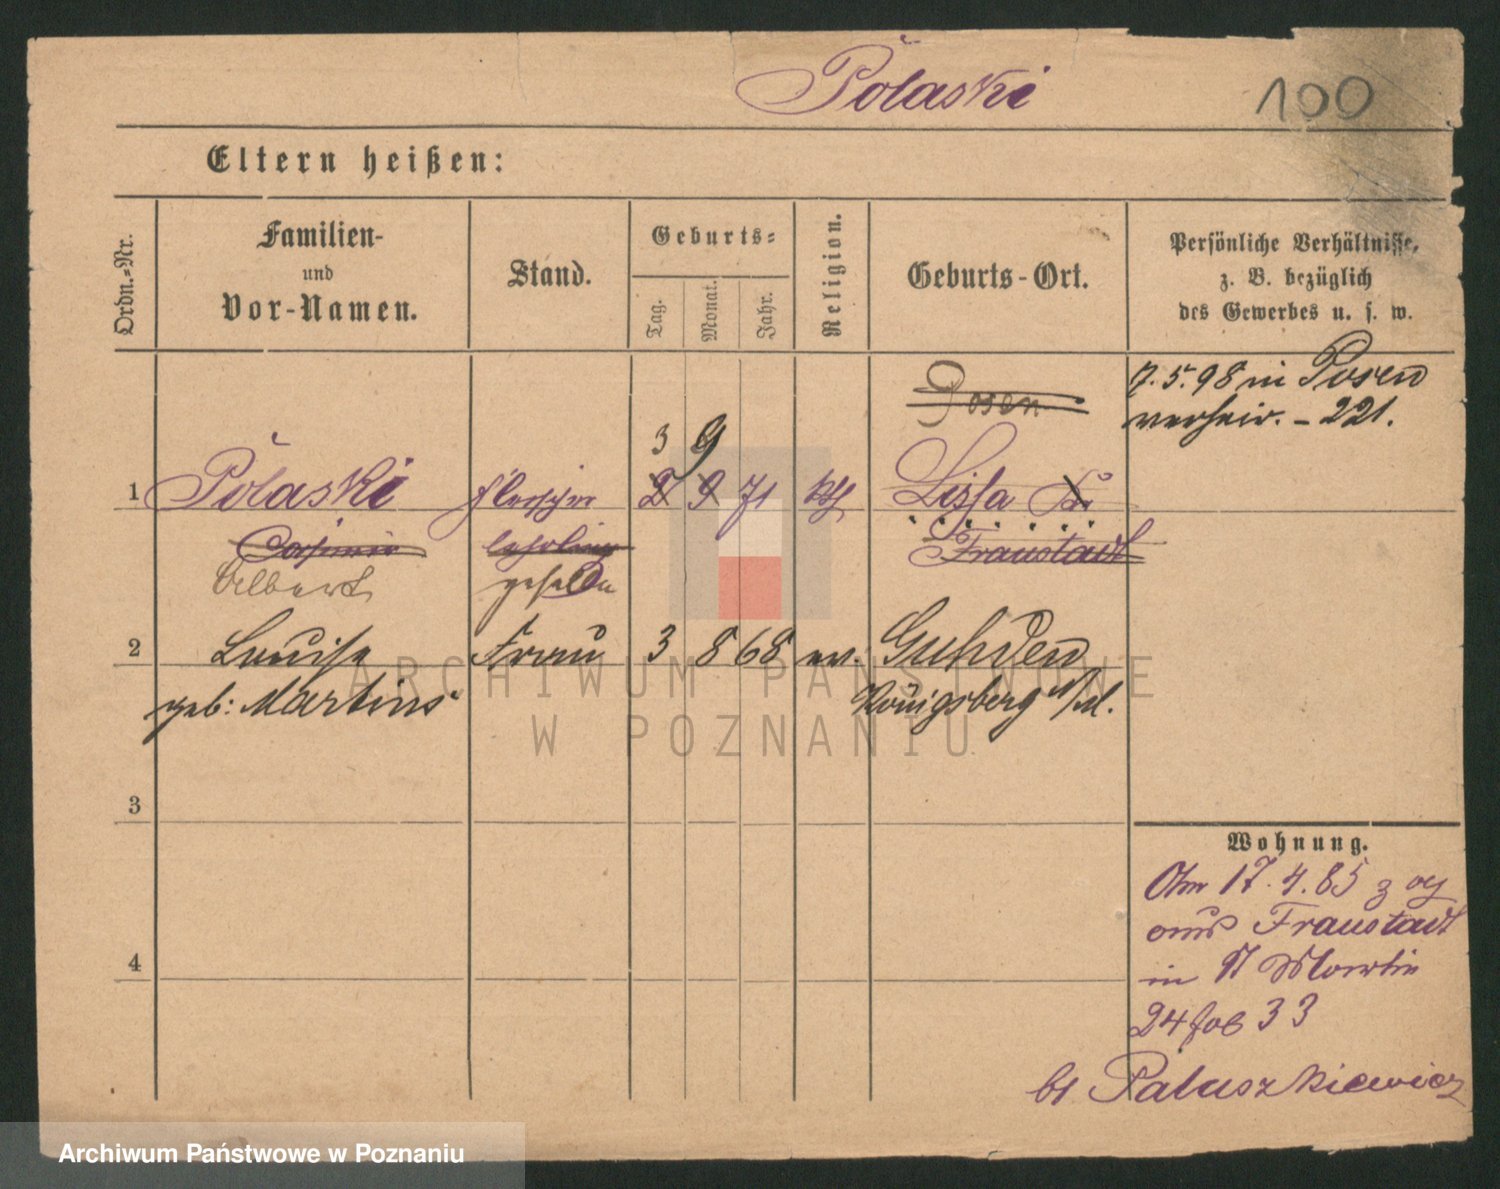 Polaski
100
Eltern heißen:
Ordn.-Nr.
Familien-
und
Vor-Namen.
Stand.
Geburts-
Tag.
Monat.
Jahr.
Religion.
Geburts-Ort.
Persönliche Verhältnisse,
z. B. bezüglich
des Gewerbes u. s. w.
Posen
7.5.98 in Posen
verheir. - 221.
3 9
1 Polaski Fleischer 2 9 71 kth Lissa
Casimir lehrling Fraustadt
Albert geselle
2 Louise Frau 3 8 68 ev. Guhden
geb: Martins Königsberg n/M.
ARCHIWUM PAŃSTWOWE
W POZNANIU
3
Wohnung.
17.4.85 z
aus Fraustadt
4
in St Martin
24 33
bs Paluszkiewicz
Archiwum Państwowe w Poznaniu